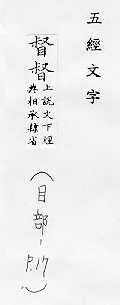 五經文字
督督
上說文下經
典相承隸省
(目部, P.17)